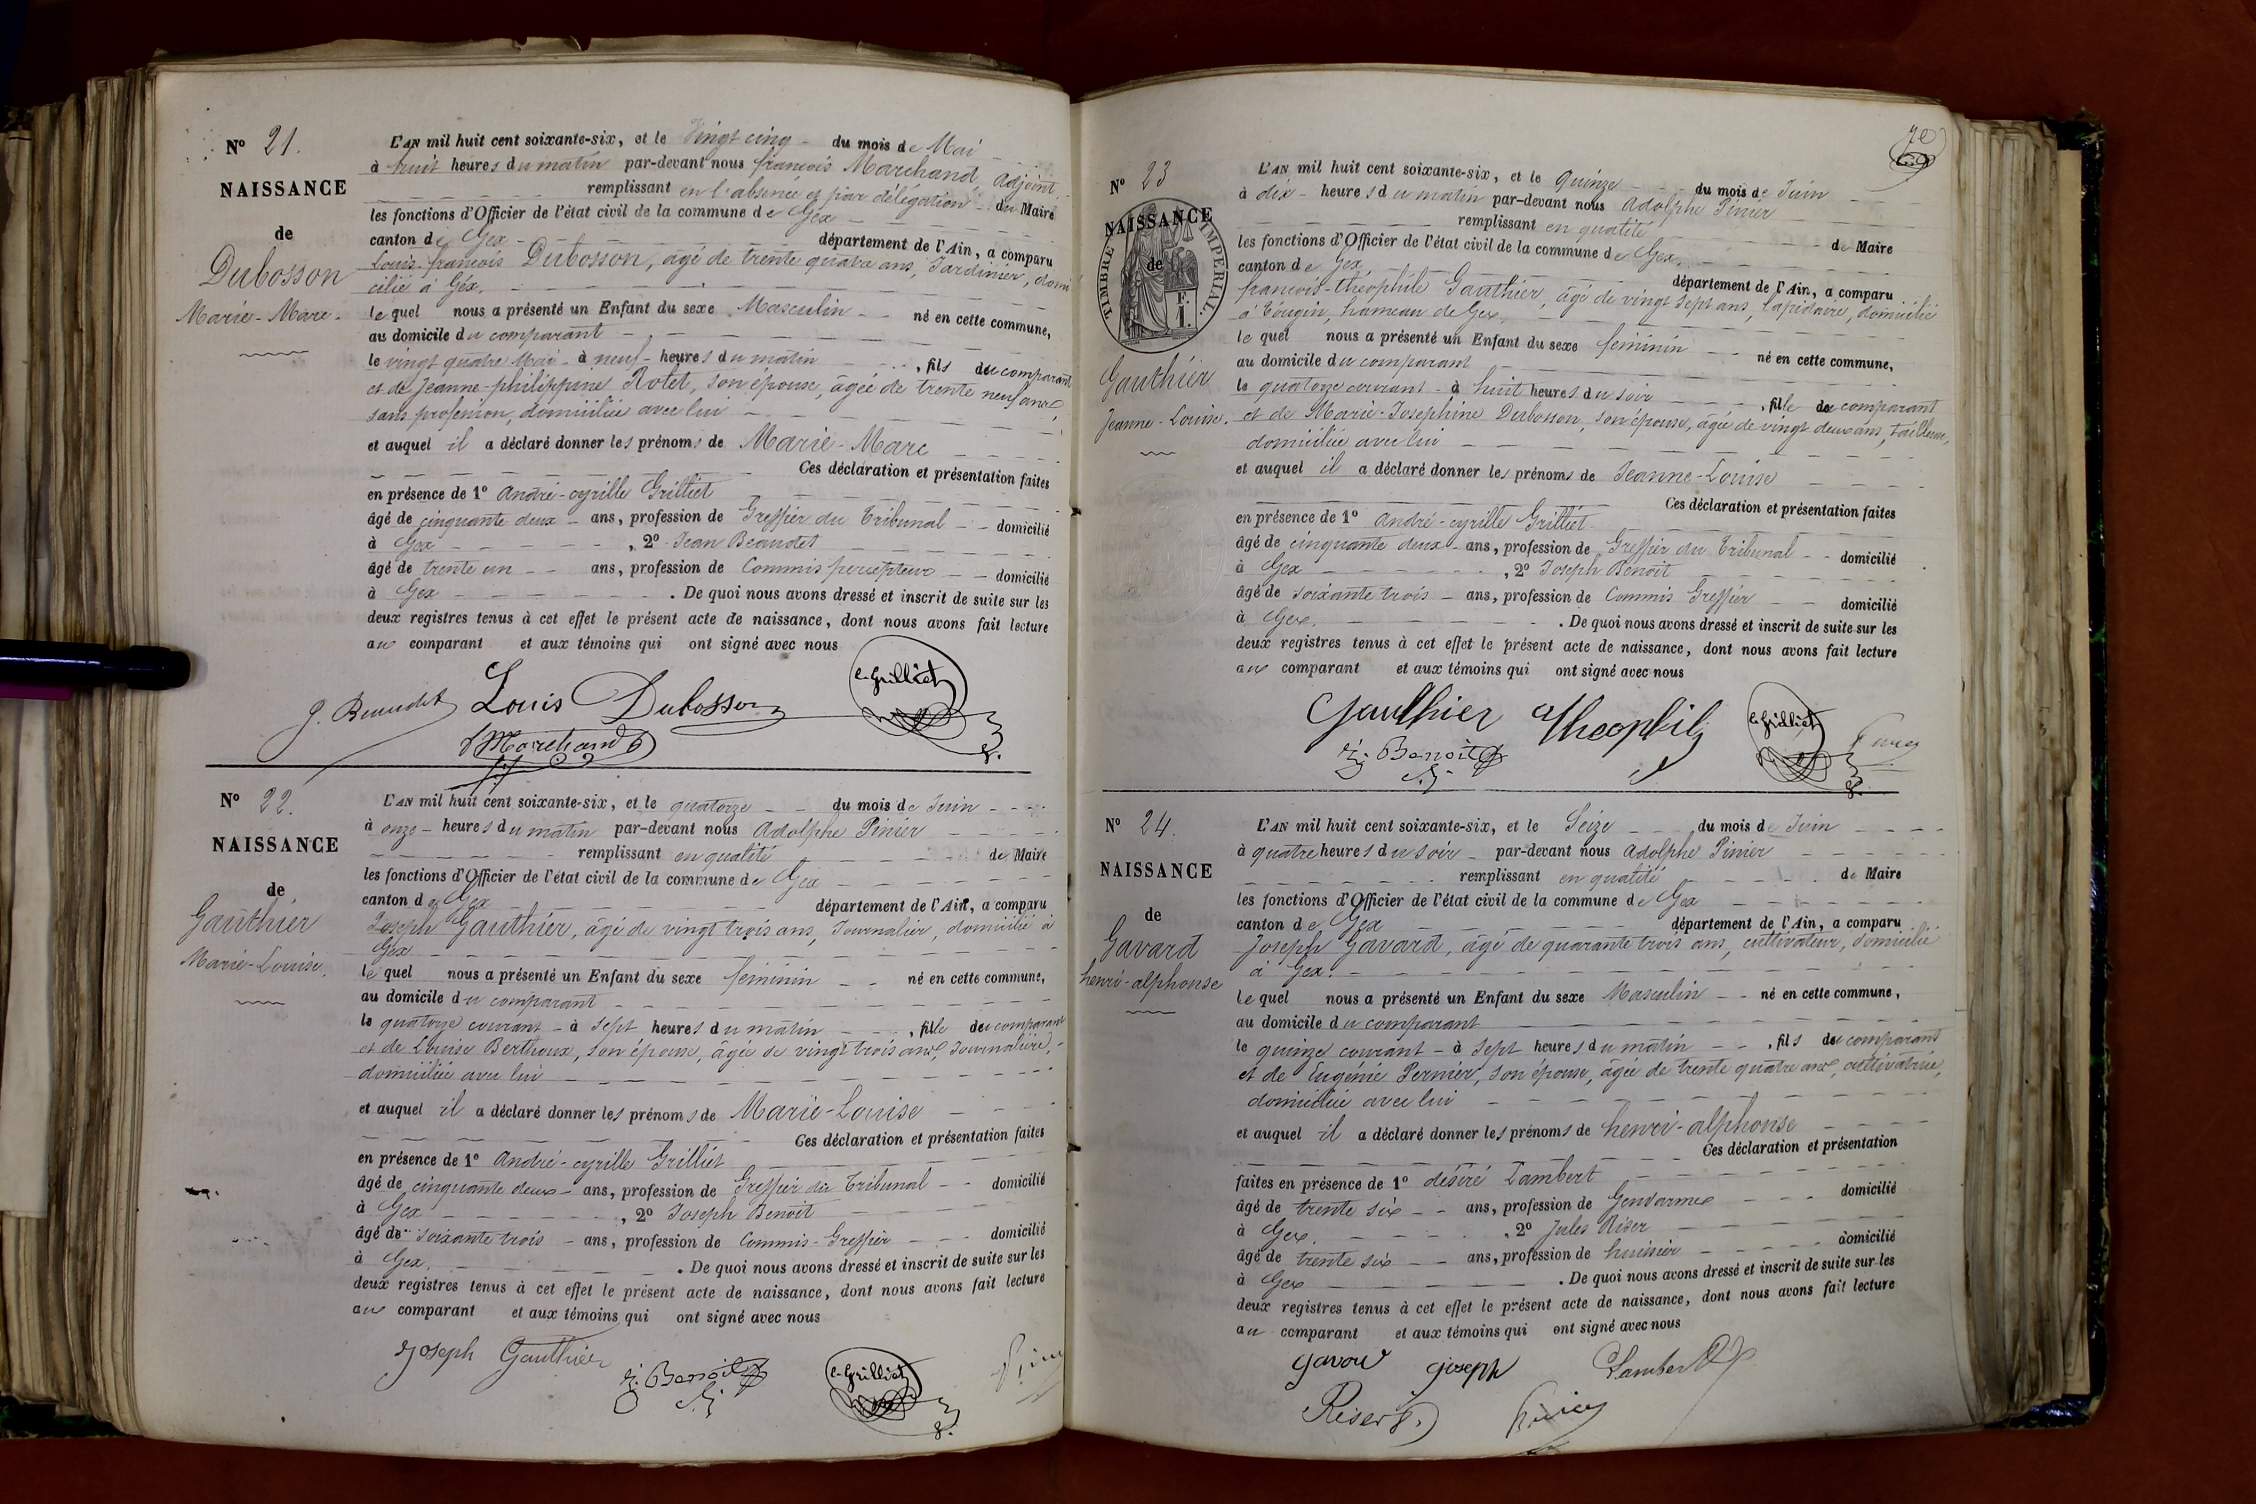 N° 21.
NAISSANCE
de
Dubosson
Marie-Marc.
L'AN mil huit cent soixante-six, et le Vingt cinq du mois de Mai
à huit heures du matin par-devant nous françois Marchand Adjoint
remplissant en l'absence et par délégation du Maire
les fonctions d'Officier de l'état civil de la commune de Gex
canton de Gex département de l'Ain, a comparu
Louis-françois Dubosson, âgé de trente quatre ans, Jardinier, domi
cilié à Gex.
le quel nous a présenté un Enfant du sexe Masculin né en cette commune,
au domicile du comparant
le vingt quatre Mai à neuf heures du matin, fils du comparant
et de Jeanne-philippine Rolet, son épouse, âgée de trente neuf ans,
sans profession, domiciliée avec lui
et auquel il a déclaré donner les prénoms de Marie-Marc
Ces déclaration et présentation faites
en présence de 1° André-cyrille Grilliet
âgé de cinquante deux ans, profession de Greffier du Tribunal domicilié
à Gex, 2° Jean Beaudet
âgé de trente un ans, profession de Commis percepteur domicilié
à Gex. De quoi nous avons dressé et inscrit de suite sur les
deux registres tenus à cet effet le présent acte de naissance, dont nous avons fait lecture
au comparant et aux témoins qui ont signé avec nous
J. Beaudet Louis Dubosson c. Grilliet
f Marchand
N° 22.
NAISSANCE
de
Gauthier
Marie-Louise.
L'AN mil huit cent soixante-six, et le quatorze du mois de Juin
à onze heures du matin par-devant nous Adolphe Pinier
remplissant en qualité de Maire
les fonctions d'Officier de l'état civil de la commune de Gex
canton de Gex département de l'Ain, a comparu
Joseph Gauthier, âgé de vingt trois ans, Journalier, domicilié à
Gex
le quel nous a présenté un Enfant du sexe feminin né en cette commune,
au domicile du comparant
le quatorze courant à Sept heures du matin, fille du comparant
et de Louise Berthoux, son épouse, âgée de vingt trois ans, Journalière,
domiciliée avec lui
et auquel il a déclaré donner les prénoms de Marie-Louise
Ces déclaration et présentation faites
en présence de 1° André-cyrille Grilliet
âgé de cinquante deux ans, profession de Greffier du Tribunal domicilié
à Gex, 2° Joseph Benoit
âgé de soixante trois ans, profession de Commis-Greffier domicilié
à Gex. De quoi nous avons dressé et inscrit de suite sur les
deux registres tenus à cet effet le présent acte de naissance, dont nous avons fait lecture
au comparant et aux témoins qui ont signé avec nous
Joseph Gauthier j. Benoit c. Grilliet
70
69
N° 23
NAISSANCE
de
TIMBRE IMPERIAL.
Gauthier
Jeanne-Louise.
L'AN mil huit cent soixante-six, et le quinze du mois de Juin
à dix heures du matin par-devant nous Adolphe Pinier
remplissant en qualité de Maire
les fonctions d'Officier de l'état civil de la commune de Gex.
canton de Gex département de l'Ain, a comparu
françois-théophile Gauthier, âgé de vingt sept ans, lapidaire, domicilié
à Tougin, hameau de Gex.
le quel nous a présenté un Enfant du sexe feminin né en cette commune,
au domicile du comparant
le quatorze courant à huit heures du soir, fille du comparant
et de Marie-Josephine Dubosson, son épouse, âgée de vingt deux ans, tailleuse,
domiciliée avec lui
et auquel il a déclaré donner les prénoms de Jeanne-Louise
Ces déclaration et présentation faites
en présence de 1° André-cyrille Grilliet
âgé de cinquante deux ans, profession de Greffier du Tribunal domicilié
à Gex, 2° Joseph Benoit
âgé de soixante trois ans, profession de Commis Greffier domicilié
à Gex. De quoi nous avons dressé et inscrit de suite sur les
deux registres tenus à cet effet le présent acte de naissance, dont nous avons fait lecture
au comparant et aux témoins qui ont signé avec nous
Gauthier théophile c. Grilliet
j. Benoit
N° 24.
NAISSANCE
de
Gavard
henri-alphonse
L'AN mil huit cent soixante-six, et le Seize du mois de Juin
à quatre heures du soir par-devant nous Adolphe Pinier
remplissant en qualité de Maire
les fonctions d'Officier de l'état civil de la commune de Gex
canton de Gex département de l'Ain, a comparu
Joseph Gavard, âgé de quarante trois ans, cultivateur, domicilié
à Gex.
le quel nous a présenté un Enfant du sexe Masculin né en cette commune,
au domicile du comparant
le quinze courant à Sept heures du matin, fils du comparant
et de Eugénie Pernier, son épouse, âgée de trente quatre ans, cultivatrice,
domiciliée avec lui
et auquel il a déclaré donner les prénoms de henri-alphonse
Ces déclaration et présentation
faites en présence de 1° désiré Lambert
âgé de trente six ans, profession de Gendarme domicilié
à Gex. 2° Jules Riser
âgé de trente six ans, profession de huissier domicilié
à Gex. De quoi nous avons dressé et inscrit de suite sur les
deux registres tenus à cet effet le présent acte de naissance, dont nous avons fait lecture
au comparant et aux témoins qui ont signé avec nous
gavar joseph Lambert
Riser j.